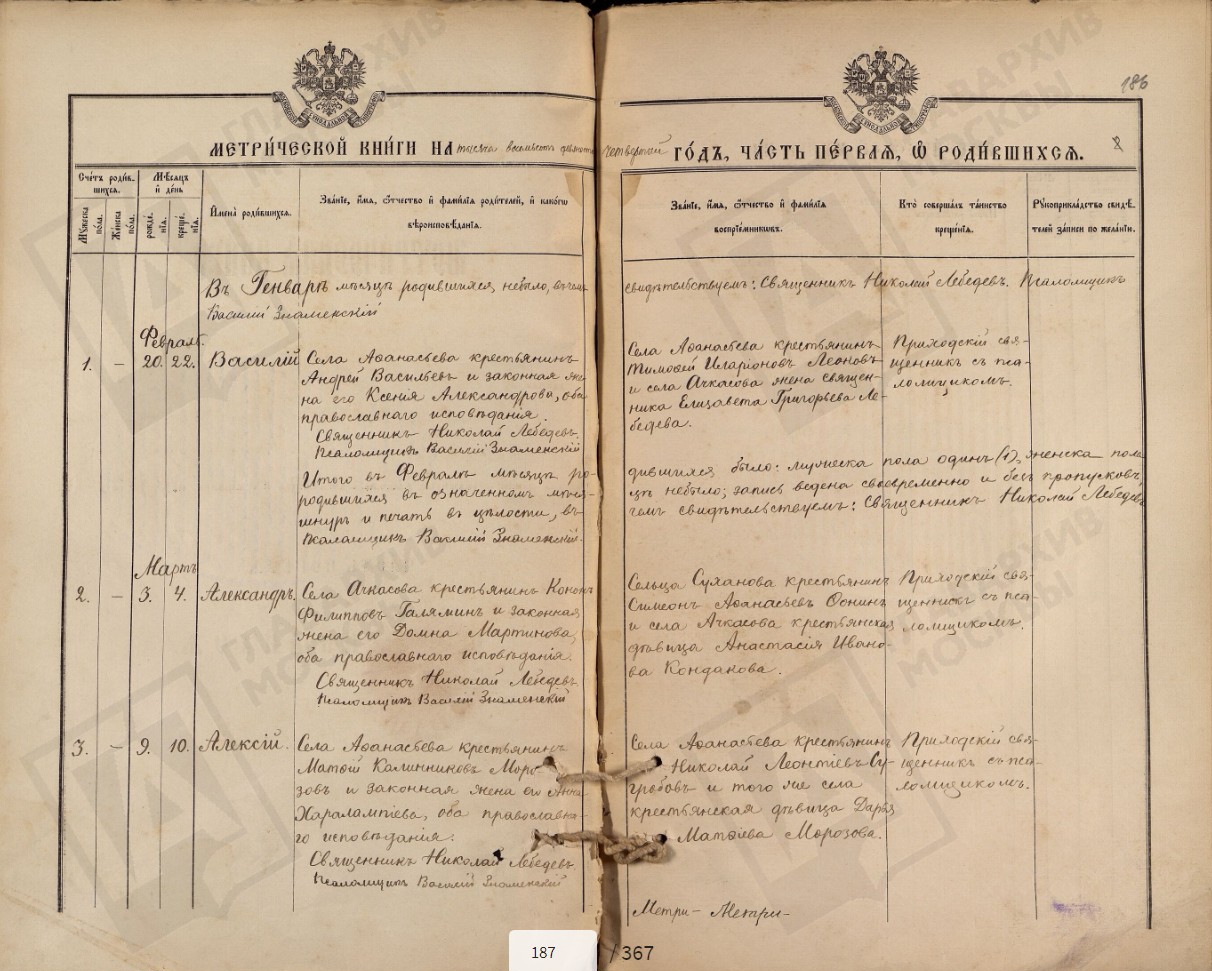 186
МЕТРИ́ЧЕСКОЙ КНИ́ГИ НА тысяча восемьсотъ девяносто четвертый ГО́ДЪ, ЧА́СТЬ ПЕ́РВАЯ, Ѽ РОДИ́ВШИХСЯ.
Сче́тъ роди́в-
шихся.
Мѣ́сяцъ
и҆ де́нь
Му́жеска по́ла.
Же́нска по́ла.
рожде́нїя.
креще́нїя.
И҆мена̀ роди́вшихся.
Зва́нїе, и҆́мя, ѻ҆́тчество и҆ фами́лїя роди́телей, и҆ како́гѡ
вѣроисповѣ́данїя.
Зва́нїе, и҆́мя, ѻ҆́тчество и҆ фами́лїя
воспрїе́мниковъ.
Кто̀ соверша́лъ та́инство
креще́нїя.
Рꙋкоприкла́дство свидѣ́-
телей за́писи по жела́нїи.
Въ Генварѣ мѣсяцѣ родившихся небыло, въ чемъ свидѣтельствуемъ: Священникъ Николай Лебедевъ. Псаломщикъ
Василій Знаменскій
Февраль.
1. – 20. 22. Василій
Села Аѳанасьева крестьянинъ
Андрей Васильевъ и законная же-
на его Ксенія Александрова, оба
православнаго исповѣданія.
Священникъ Николай Лебедевъ.
Псаломщикъ Василій Знаменскій
Села Аѳанасьева крестьянинъ
Тимоѳей Иларіоновъ Леоновъ
и села Ачкасова жена священ-
ника Елизавета Григорьева Ле-
бедева.
Приходскій свя-
щенникъ съ пса-
ломщикомъ.
Итого въ Февралѣ мѣсяцѣ ро- дившихся было: мужеска пола одинъ (1), женска пола
родившихся въ означенномъ мѣся- цѣ небыло; запись ведена своевременно и безъ пропусковъ,
шнуръ и печать въ цѣлости, въ чемъ свидѣтельствуемъ: Священникъ Николай Лебедевъ
Псаломщикъ Василій Знаменскій.
Мартъ
2. – 3. 4. Александръ.
Села Ачкасова крестьянинъ Кононъ
Филипповъ Галяминъ и законная
жена его Домна Мартинова,
оба православнаго исповѣданія.
Священникъ Николай Лебедевъ
Псаломщикъ Василій Знаменскій
Сельца Суханова крестьянинъ
Симеонъ Аѳанасьевъ Ѳонинъ
и села Ачкасова крестьянская
дѣвица Анастасія Ивано-
ва Кондакова.
Приходскій свя-
щенникъ съ пса-
ломщикомъ.
3. – 9. 10. Алексій.
Села Аѳанасьева крестьянинъ
Матѳій Калинниковъ Моро-
зовъ и законная жена его Анна
Харалампіева, оба православна-
го исповѣданія.
Священникъ Николай Лебедевъ.
Псаломщикъ Василій Знаменскій
Села Аѳанасьева крестьянинъ
Николай Леонтіевъ Су-
гробовъ и того же села
крестьянская дѣвица Дарья
Матѳіева Морозова.
Приходскій свя-
щенникъ съ пса-
ломщикомъ.
Метри- Метри-
187 / 367
ГЛАВАРХИВ
МОСКВЫ